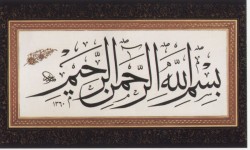 بسم الله الرحمن الرحيم
١٣٦٠